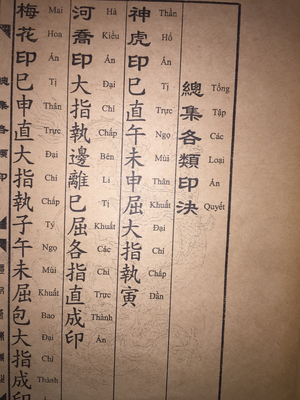 總集各類印決
Tổng Tập Các Loại Án Quyết
神虎印巳直午未申屈大指執寅
Thần Hổ Án Tị Trực Ngọ Mùi Thân Khuất Đại Chí Chấp Dần
河喬印大指執邊離巳屈各指直成印
Hà Kiều Án Đại Chí Chấp Bên Li Tị Khuất Các Chí Trực Thành Án
梅花印巳申直大指執子午未屈包大指成印
Mai Hoa Án Tị Thân Trực Đại Chí Chấp Tý Ngọ Mùi Khuất Bao Đại Chí Thành
總集各類印